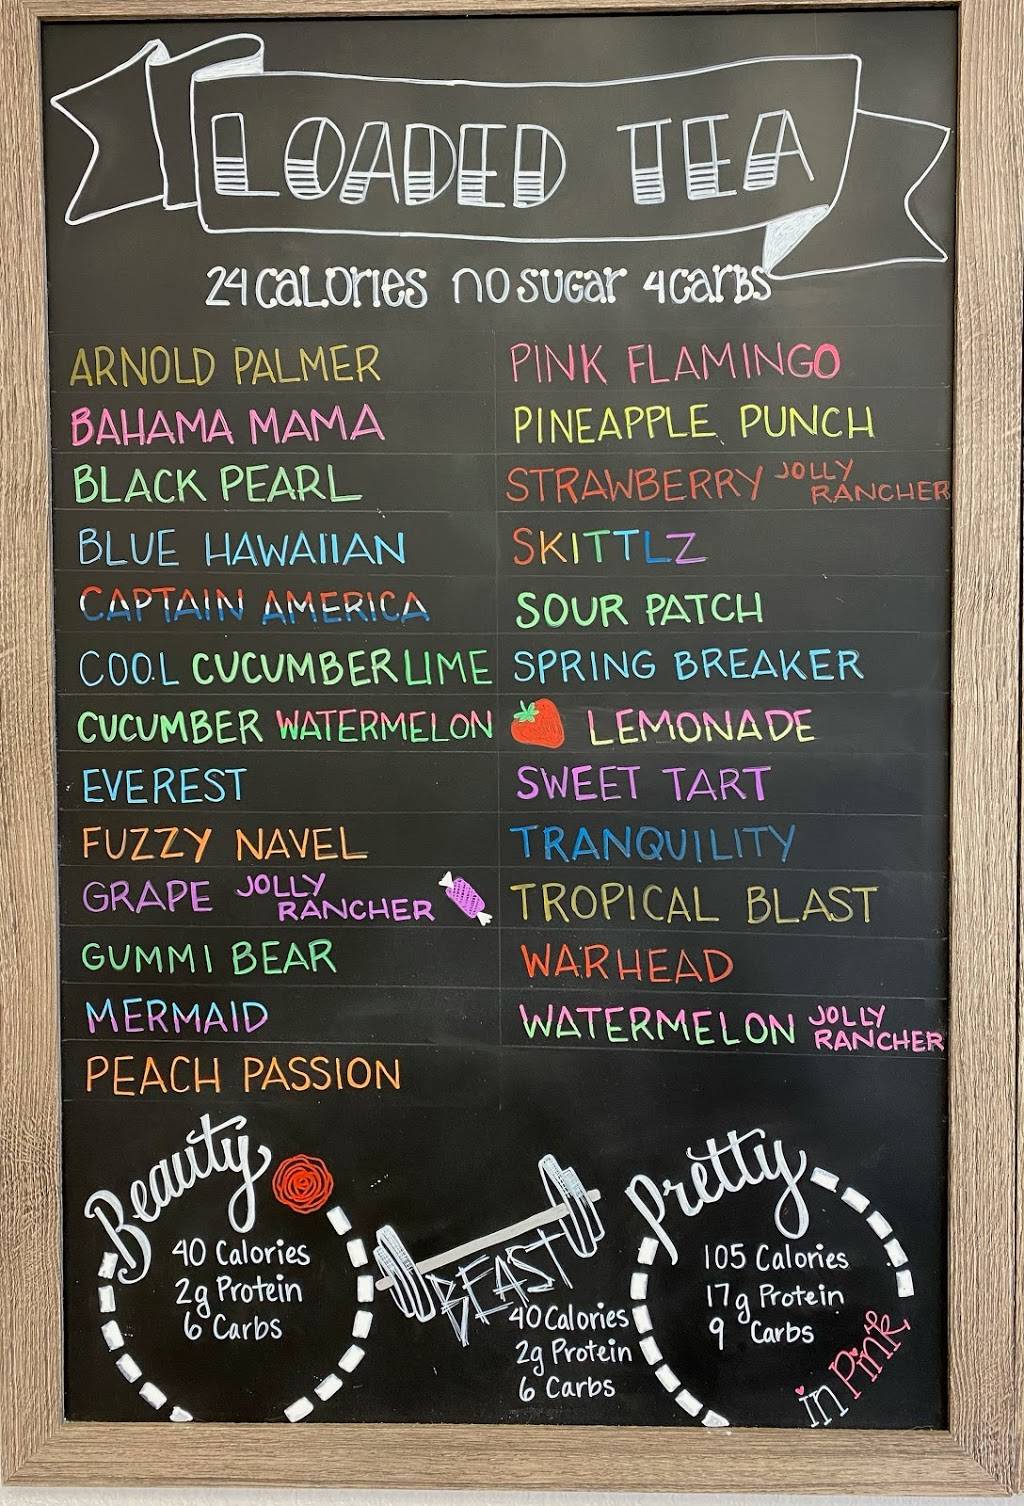 LOADED TEA
24 CALORIES NO SUGAR 4 CARBS
ARNOLD PALMER
BAHAMA MAMA
BLACK PEARL
BLUE HAWAIIAN
CAPTAIN AMERICA
COOL CUCUMBER LIME
CUCUMBER WATERMELON
EVEREST
FUZZY NAVEL
GRAPE JOLLY
RANCHER
GUMMI BEAR
MERMAID
PEACH PASSION
PINK FLAMINGO
PINEAPPLE PUNCH
STRAWBERRY JOLLY
RANCHER
SKITTLZ
SOUR PATCH
SPRING BREAKER
LEMONADE
SWEET TART
TRANQUILITY
TROPICAL BLAST
WARHEAD
WATERMELON JOLLY
RANCHER
Beauty
40 Calories
2g Protein
6 Carbs
BEAST
40 Calories
2g Protein
6 Carbs
Pretty
105 Calories
17g Protein
9 Carbs
in Pink